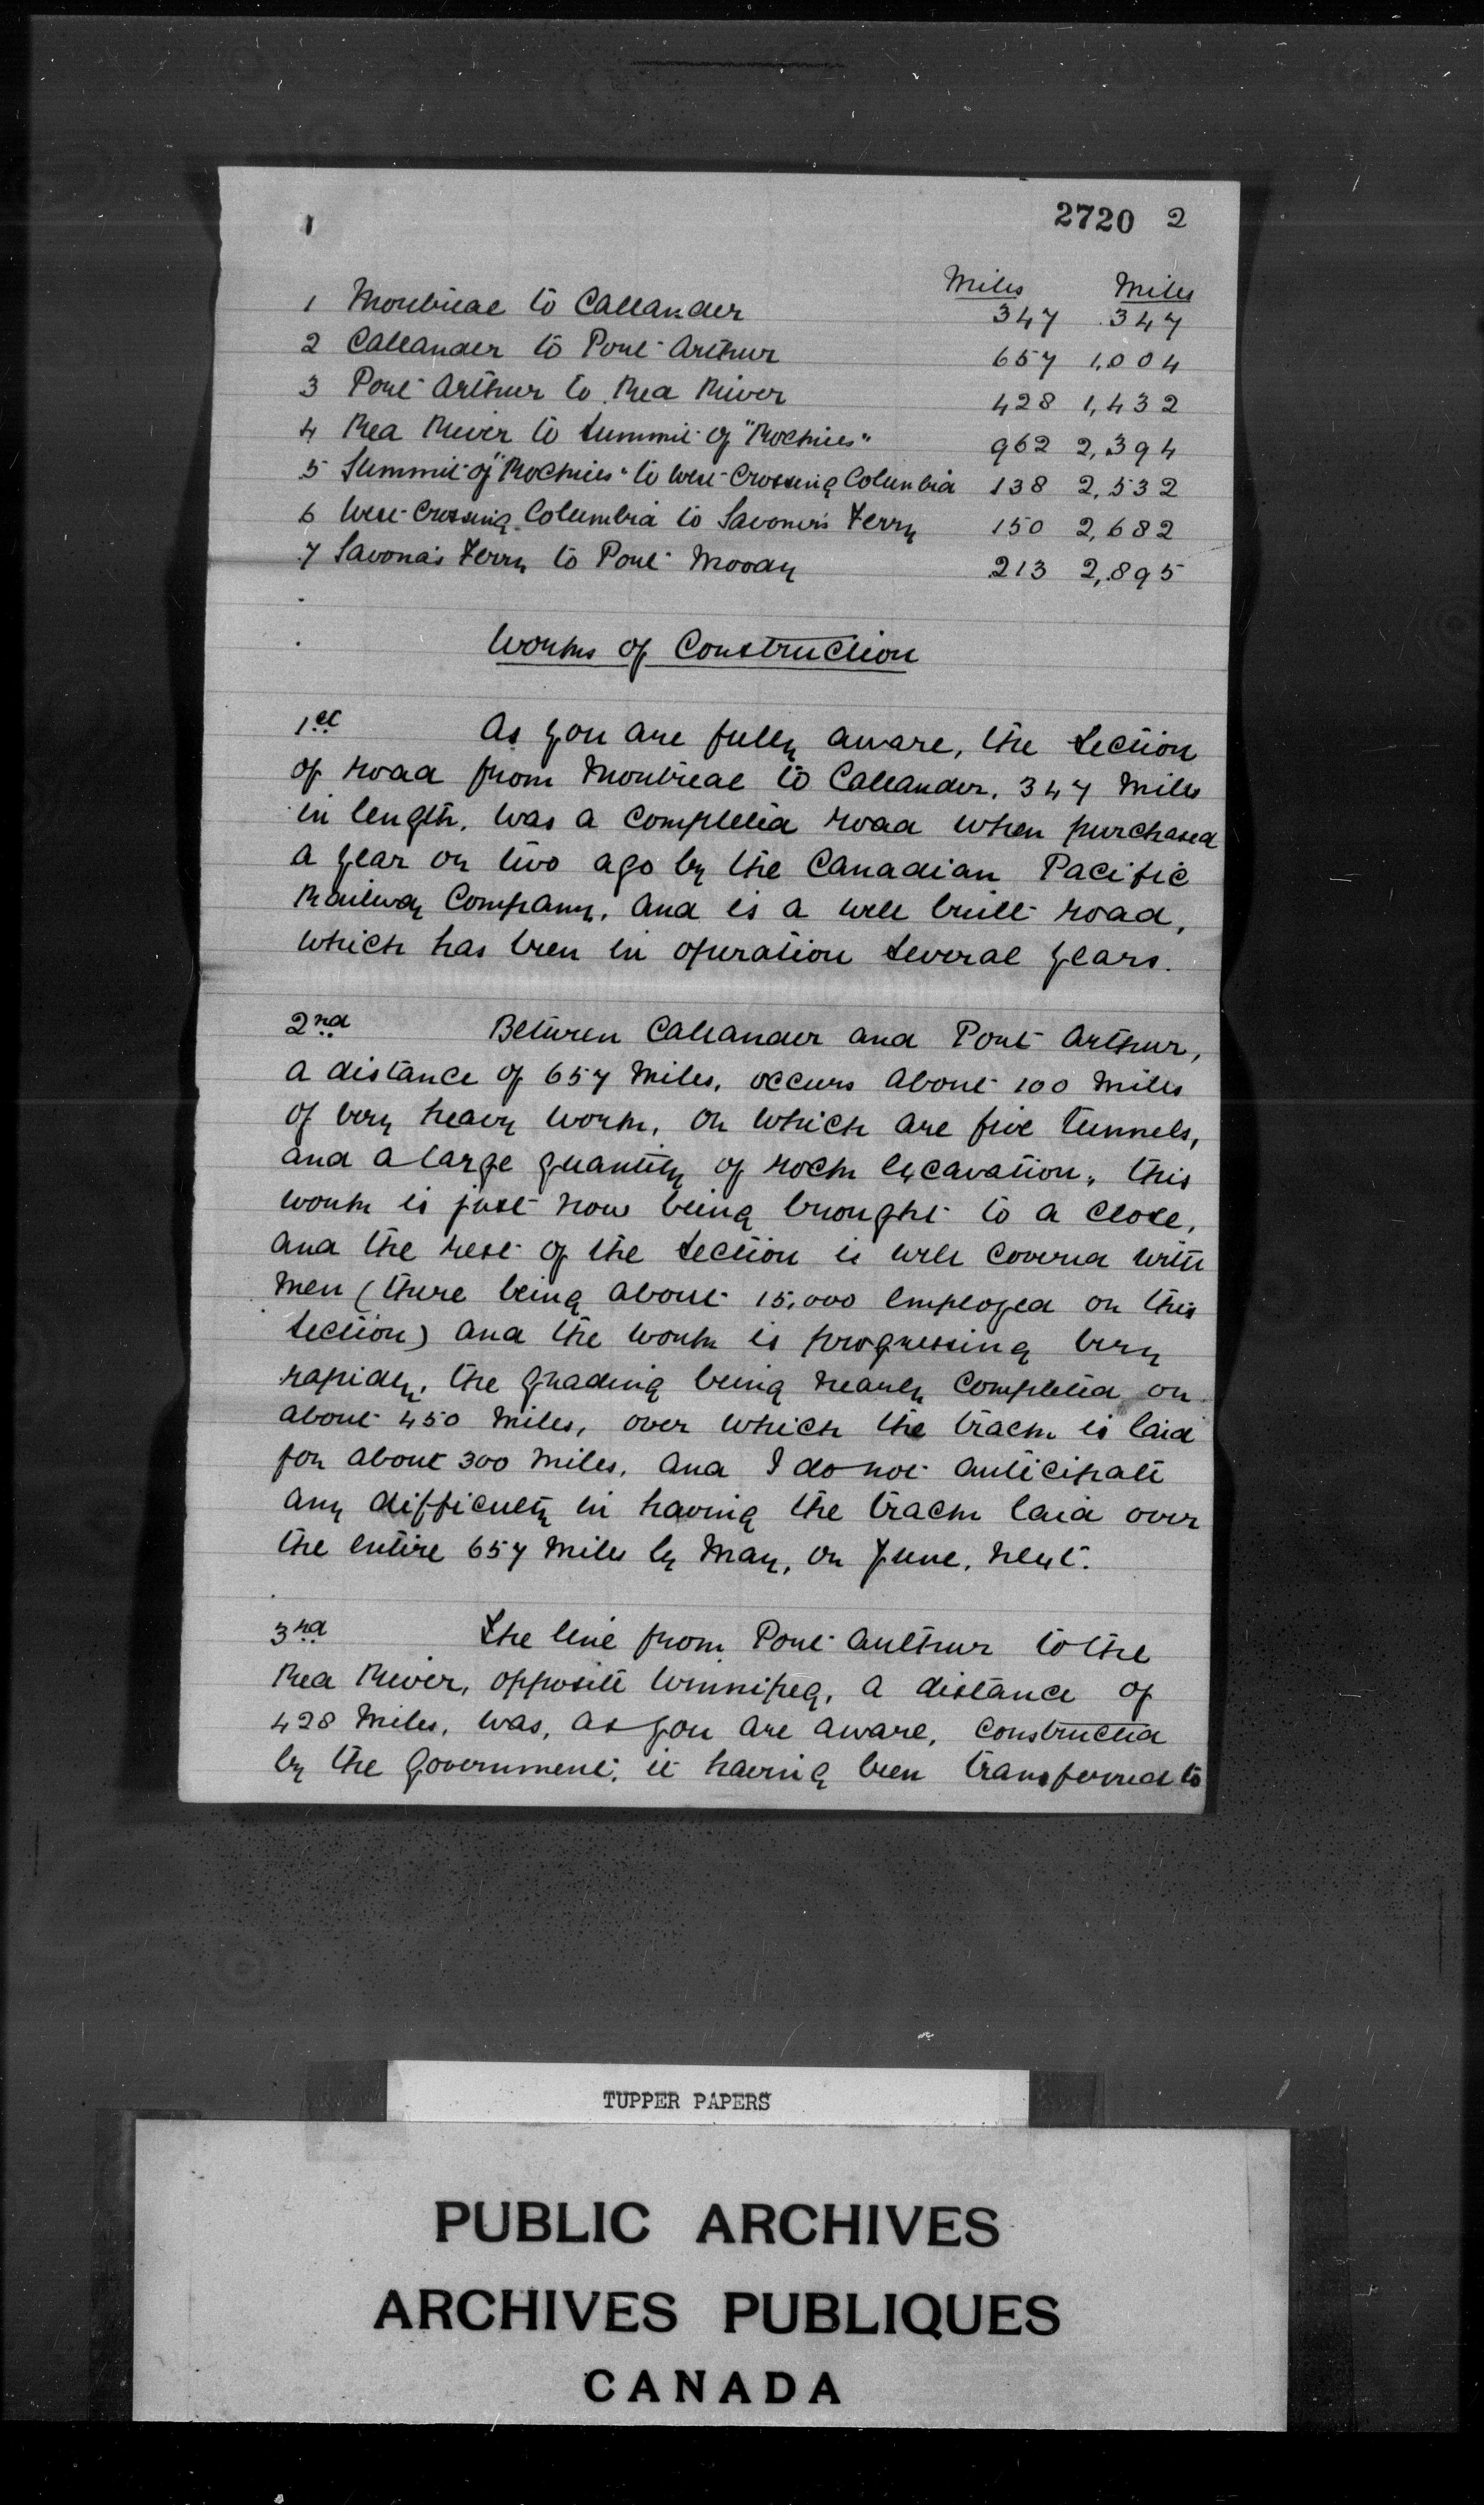 1
2720 2
Miles Miles
1 Montreal to Callander 347 347
2 Callander to Port Arthur 657 1,004
3 Port Arthur to Red River 428 1,432
4 Red River to Summit of "Rockies" 962 2,394
5 Summit of "Rockies" to West Crossing Columbia 138 2,532
6 West Crossing Columbia to Savona's Ferry 150 2,682
7 Savona's Ferry to Port Moody 213 2,895
Works of Construction
1st As you are fully aware, the section
of road from Montreal to Callander, 347 miles
in length, was a completed road when purchased
a year or two ago by the Canadian Pacific
Railway Company, and is a well built road,
which has been in operation several years.
2nd Between Callander and Port Arthur,
a distance of 657 miles, occurs about 100 miles
of very heavy work, on which are five tunnels,
and a large quantity of rock excavation, this
work is just now being brought to a close,
and the rest of the section is well covered with
men (there being about 15,000 employed on this
section) and the work is progressing very
rapidly, the grading being nearly completed on
about 450 miles, over which the track is laid
for about 300 miles, and I do not anticipate
any difficulty in having the track laid over
the entire 657 miles by May, or June, next.
3rd The line from Port Arthur to the
Red River, opposite Winnipeg, a distance of
428 miles, was, as you are aware, constructed
by the Government, it having been transferred to
TUPPER PAPERS
PUBLIC ARCHIVES
ARCHIVES PUBLIQUES
CANADA